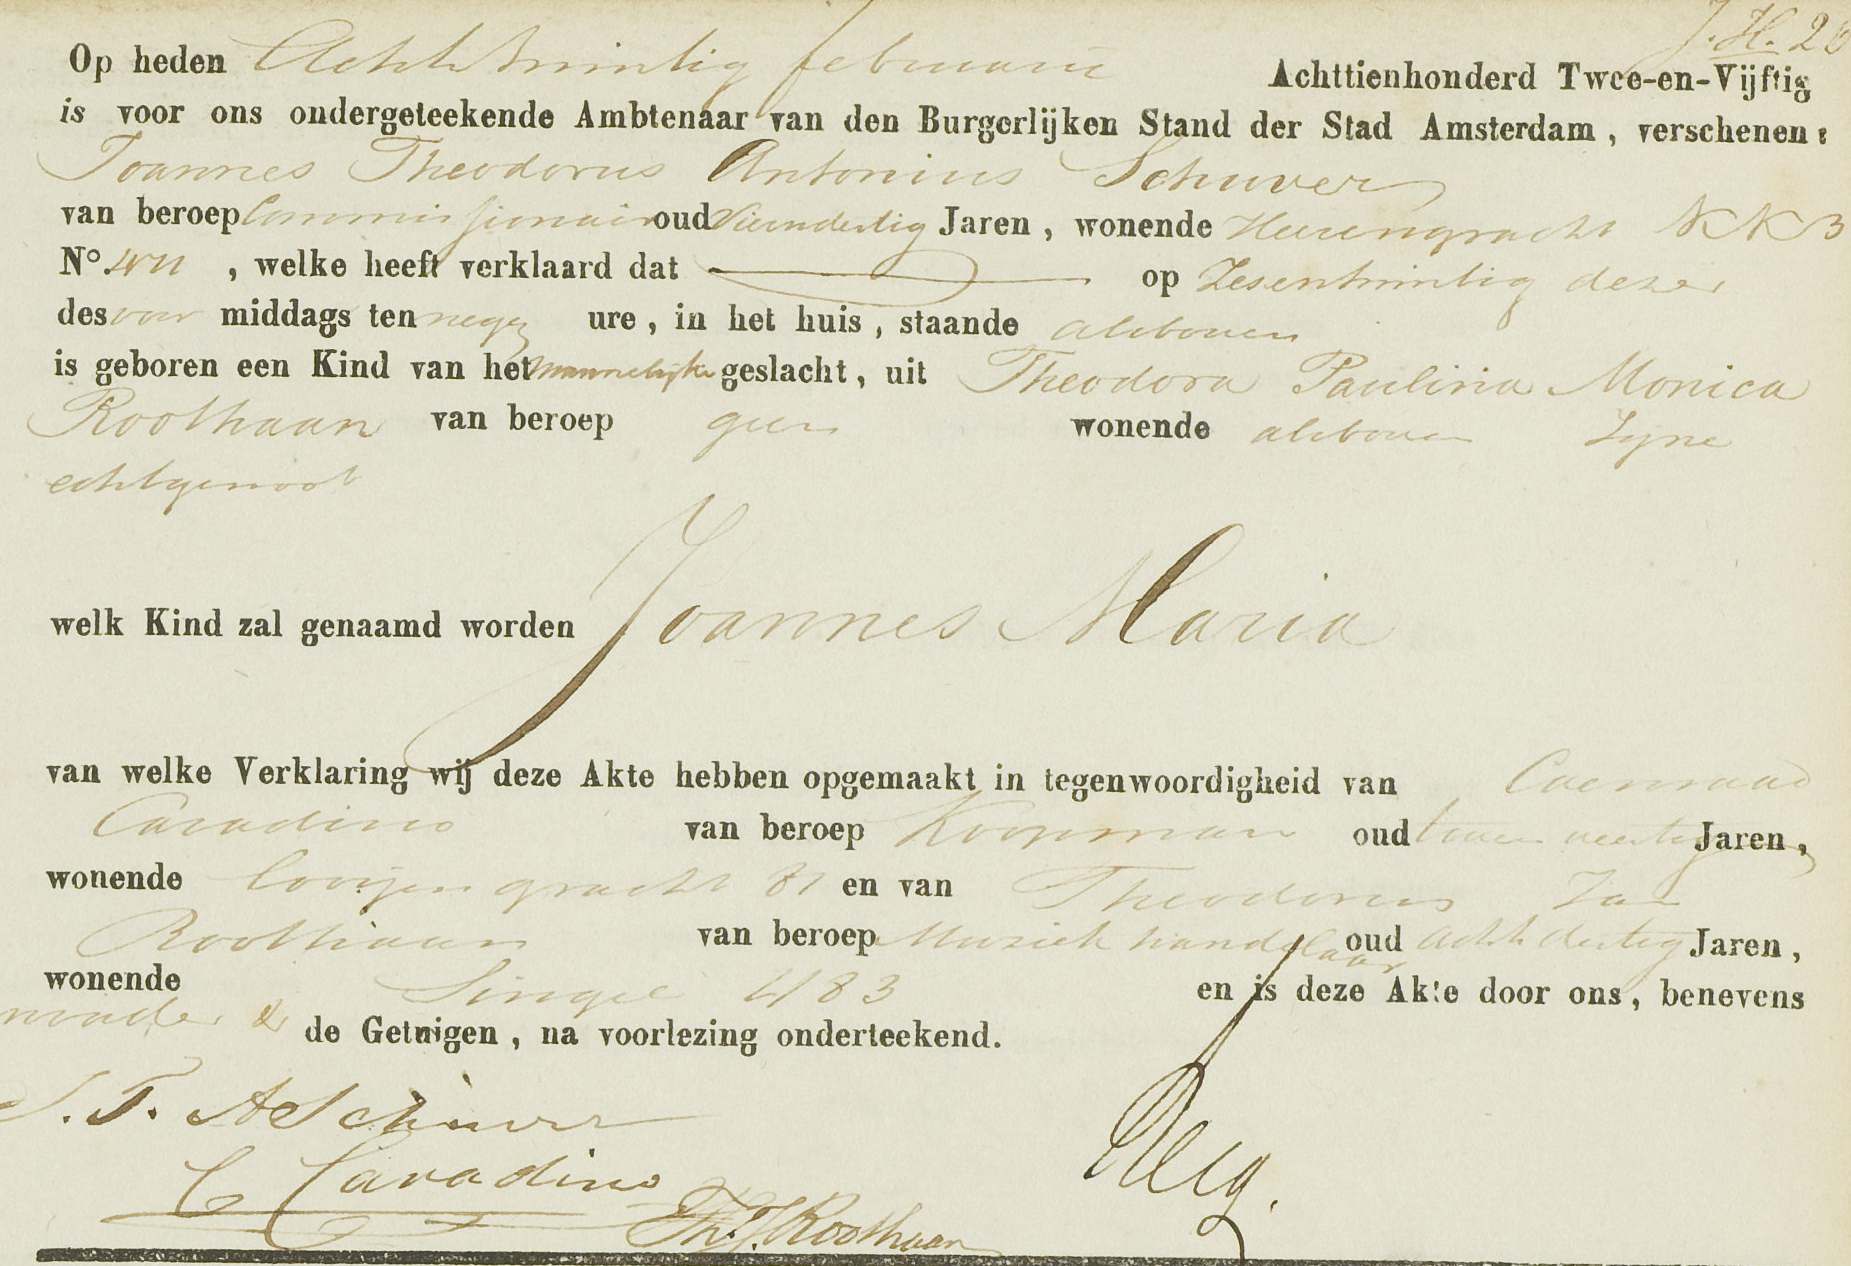 J. H. 26
Op heden Achttwintig februarii Achttienhonderd Twee-en-Vijftig
is voor ons ondergeteekende Ambtenaar van den Burgerlijken Stand der Stad Amsterdam, verschenen:
Joannes Theodorus Antonius Schuver
van beroep Commissionair oud Vierndertig Jaren, wonende Heerengracht KK
No. , welke heeft verklaard dat op Zesentwintig dezer
des voor middags ten negen ure, in het huis, staande alsboven
is geboren een Kind van het mannelijke geslacht, uit Theodora Paulina Monica
Roothaan van beroep geen wonende alsboven Zyne
echtgenoot
welk Kind zal genaamd worden Joannes Maria
van welke Verklaring wij deze Akte hebben opgemaakt in tegenwoordigheid van Coenraad
Cavadino van beroep Koopman oud twee veertig Jaren,
wonende Looijersgracht 81 en van Theodorus Jan
Roothaan van beroep Muziekhandelaar oud acht dertig Jaren,
wonende Singel 483 en is deze Akte door ons, benevens
de Getuigen, na voorlezing onderteekend.
J. T. A Schuver
C Cavadino
Th. J. Roothaan